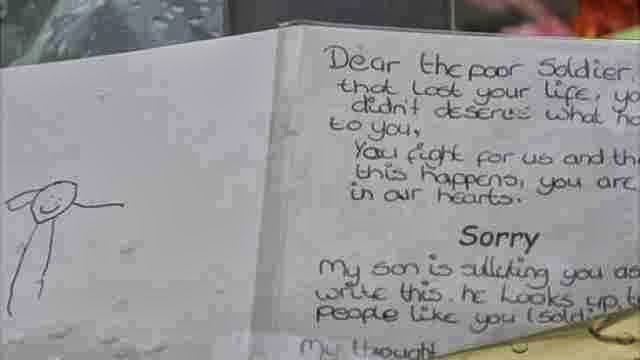 Dear the poor Soldier
that lost your life, yo
didn't deserve what ha
to you,
You fight for us and th
this happens, you are
in our hearts.
Sorry
My son is saluting you as
write this. he looks up t
people like you (soldi
My thought